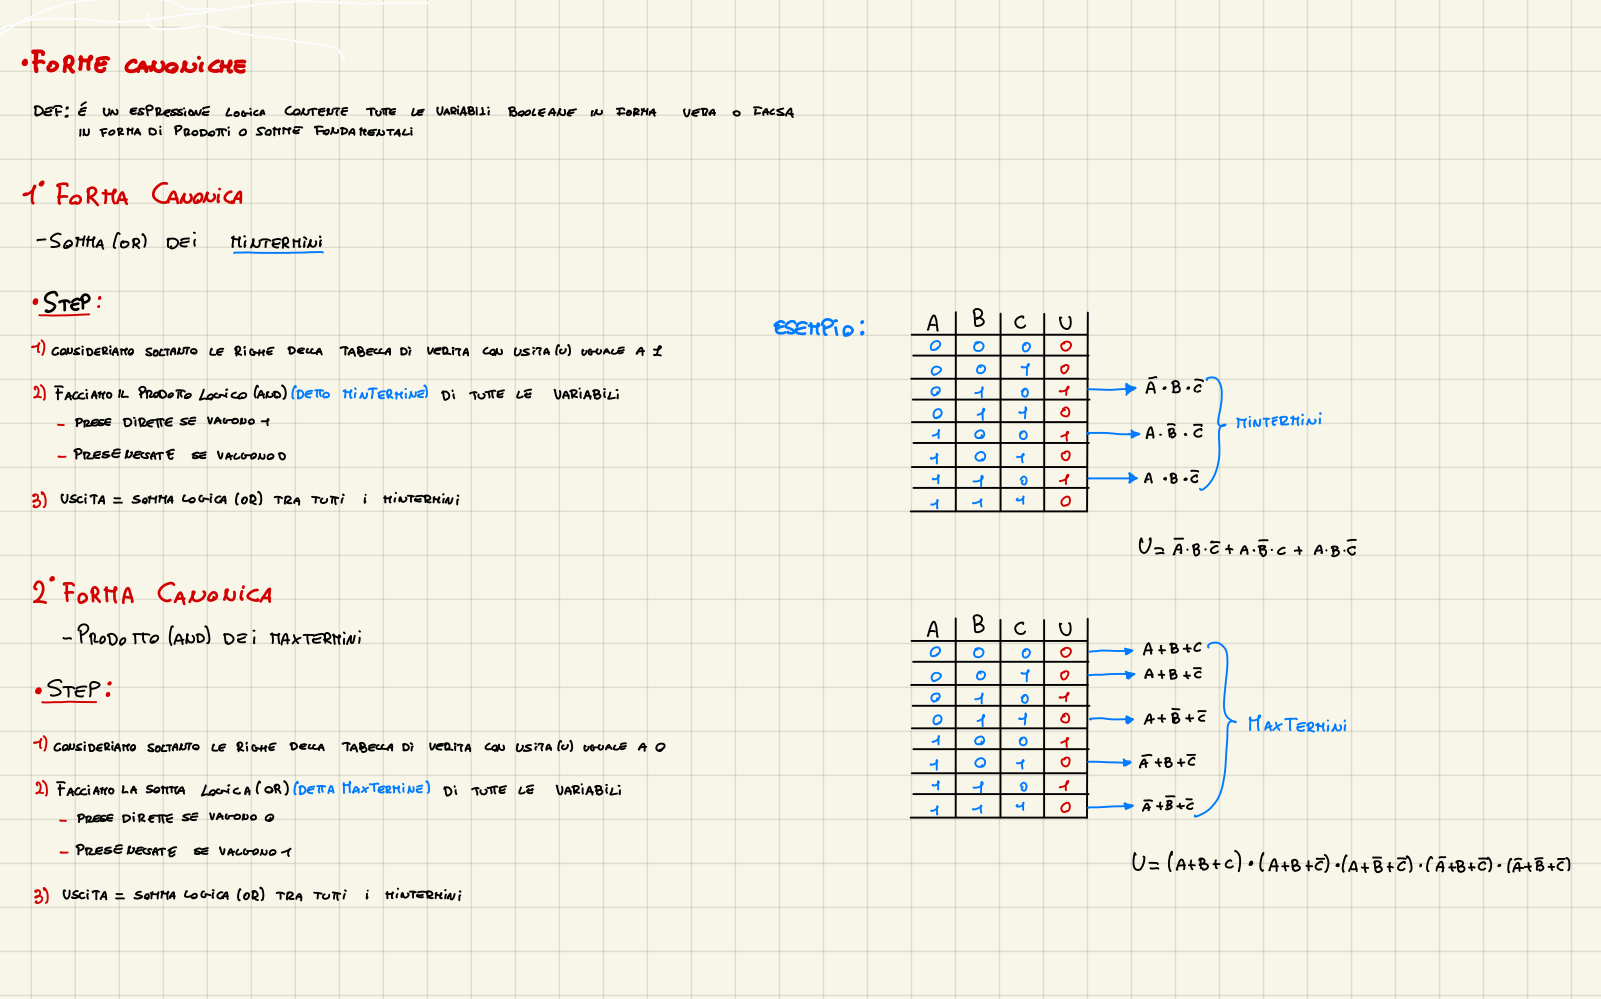 •FORME CANONICHE
DEF: É UN ESPRESSIONE LOGICA CONTENTE TUTTE LE VARIABILI BOOLEANE IN FORMA VERA O FALSA
IN FORMA DI PRODOTTI O SOMME FONDAMENTALI
1° FORMA CANONICA
-SOMMA (OR) DEI MINTERMINI
•STEP:
1) CONSIDERIAMO SOLTANTO LE RIGHE DELLA TABELLA DI VERITA CON USITA (U) UGUALE A 1
2) FACCIAMO IL PRODOTTO LOGICO (AND) (DETTO MINTERMINE) DI TUTTE LE VARIABILI
- PRESE DIRETTE SE VALGONO 1
- PRESE NEGATE SE VALGONO 0
3) USCITA = SOMMA LOGICA (OR) TRA TUTTI I MINTERMINI
ESEMPIO:
A B C U
0 0 0 0
0 0 1 0
0 1 0 1 A̅·B·C̅
0 1 1 0
1 0 0 1 A·B̅·C̅
1 0 1 0
1 1 0 1 A·B·C̅
1 1 1 0
MINTERMINI
U= A̅·B·C̅+A·B̅·C+A·B·C̅
2° FORMA CANONICA
- PRODOTTO (AND) DEI MAXTERMINI
•STEP:
1) CONSIDERIAMO SOLTANTO LE RIGHE DELLA TABELLA DI VERITA CON USITA (U) UGUALE A 0
2) FACCIAMO LA SOMMA LOGICA (OR) (DETTA MAXTERMINE) DI TUTTE LE VARIABILI
- PRESE DIRETTE SE VALGONO 0
- PRESE NEGATE SE VALGONO 1
3) USCITA = SOMMA LOGICA (OR) TRA TUTTI I MINTERMINI
A B C U
0 0 0 0 A+B+C
0 0 1 0 A+B+C̅
0 1 0 1
0 1 1 0 A+B̅+C̅
1 0 0 1
1 0 1 0 A̅+B+C̅
1 1 0 1
1 1 1 0 A̅+B̅+C̅
MAXTERMINI
U= (A+B+C)·(A+B+C̅)·(A+B̅+C̅)·(A̅+B+C̅)·(A̅+B̅+C̅)